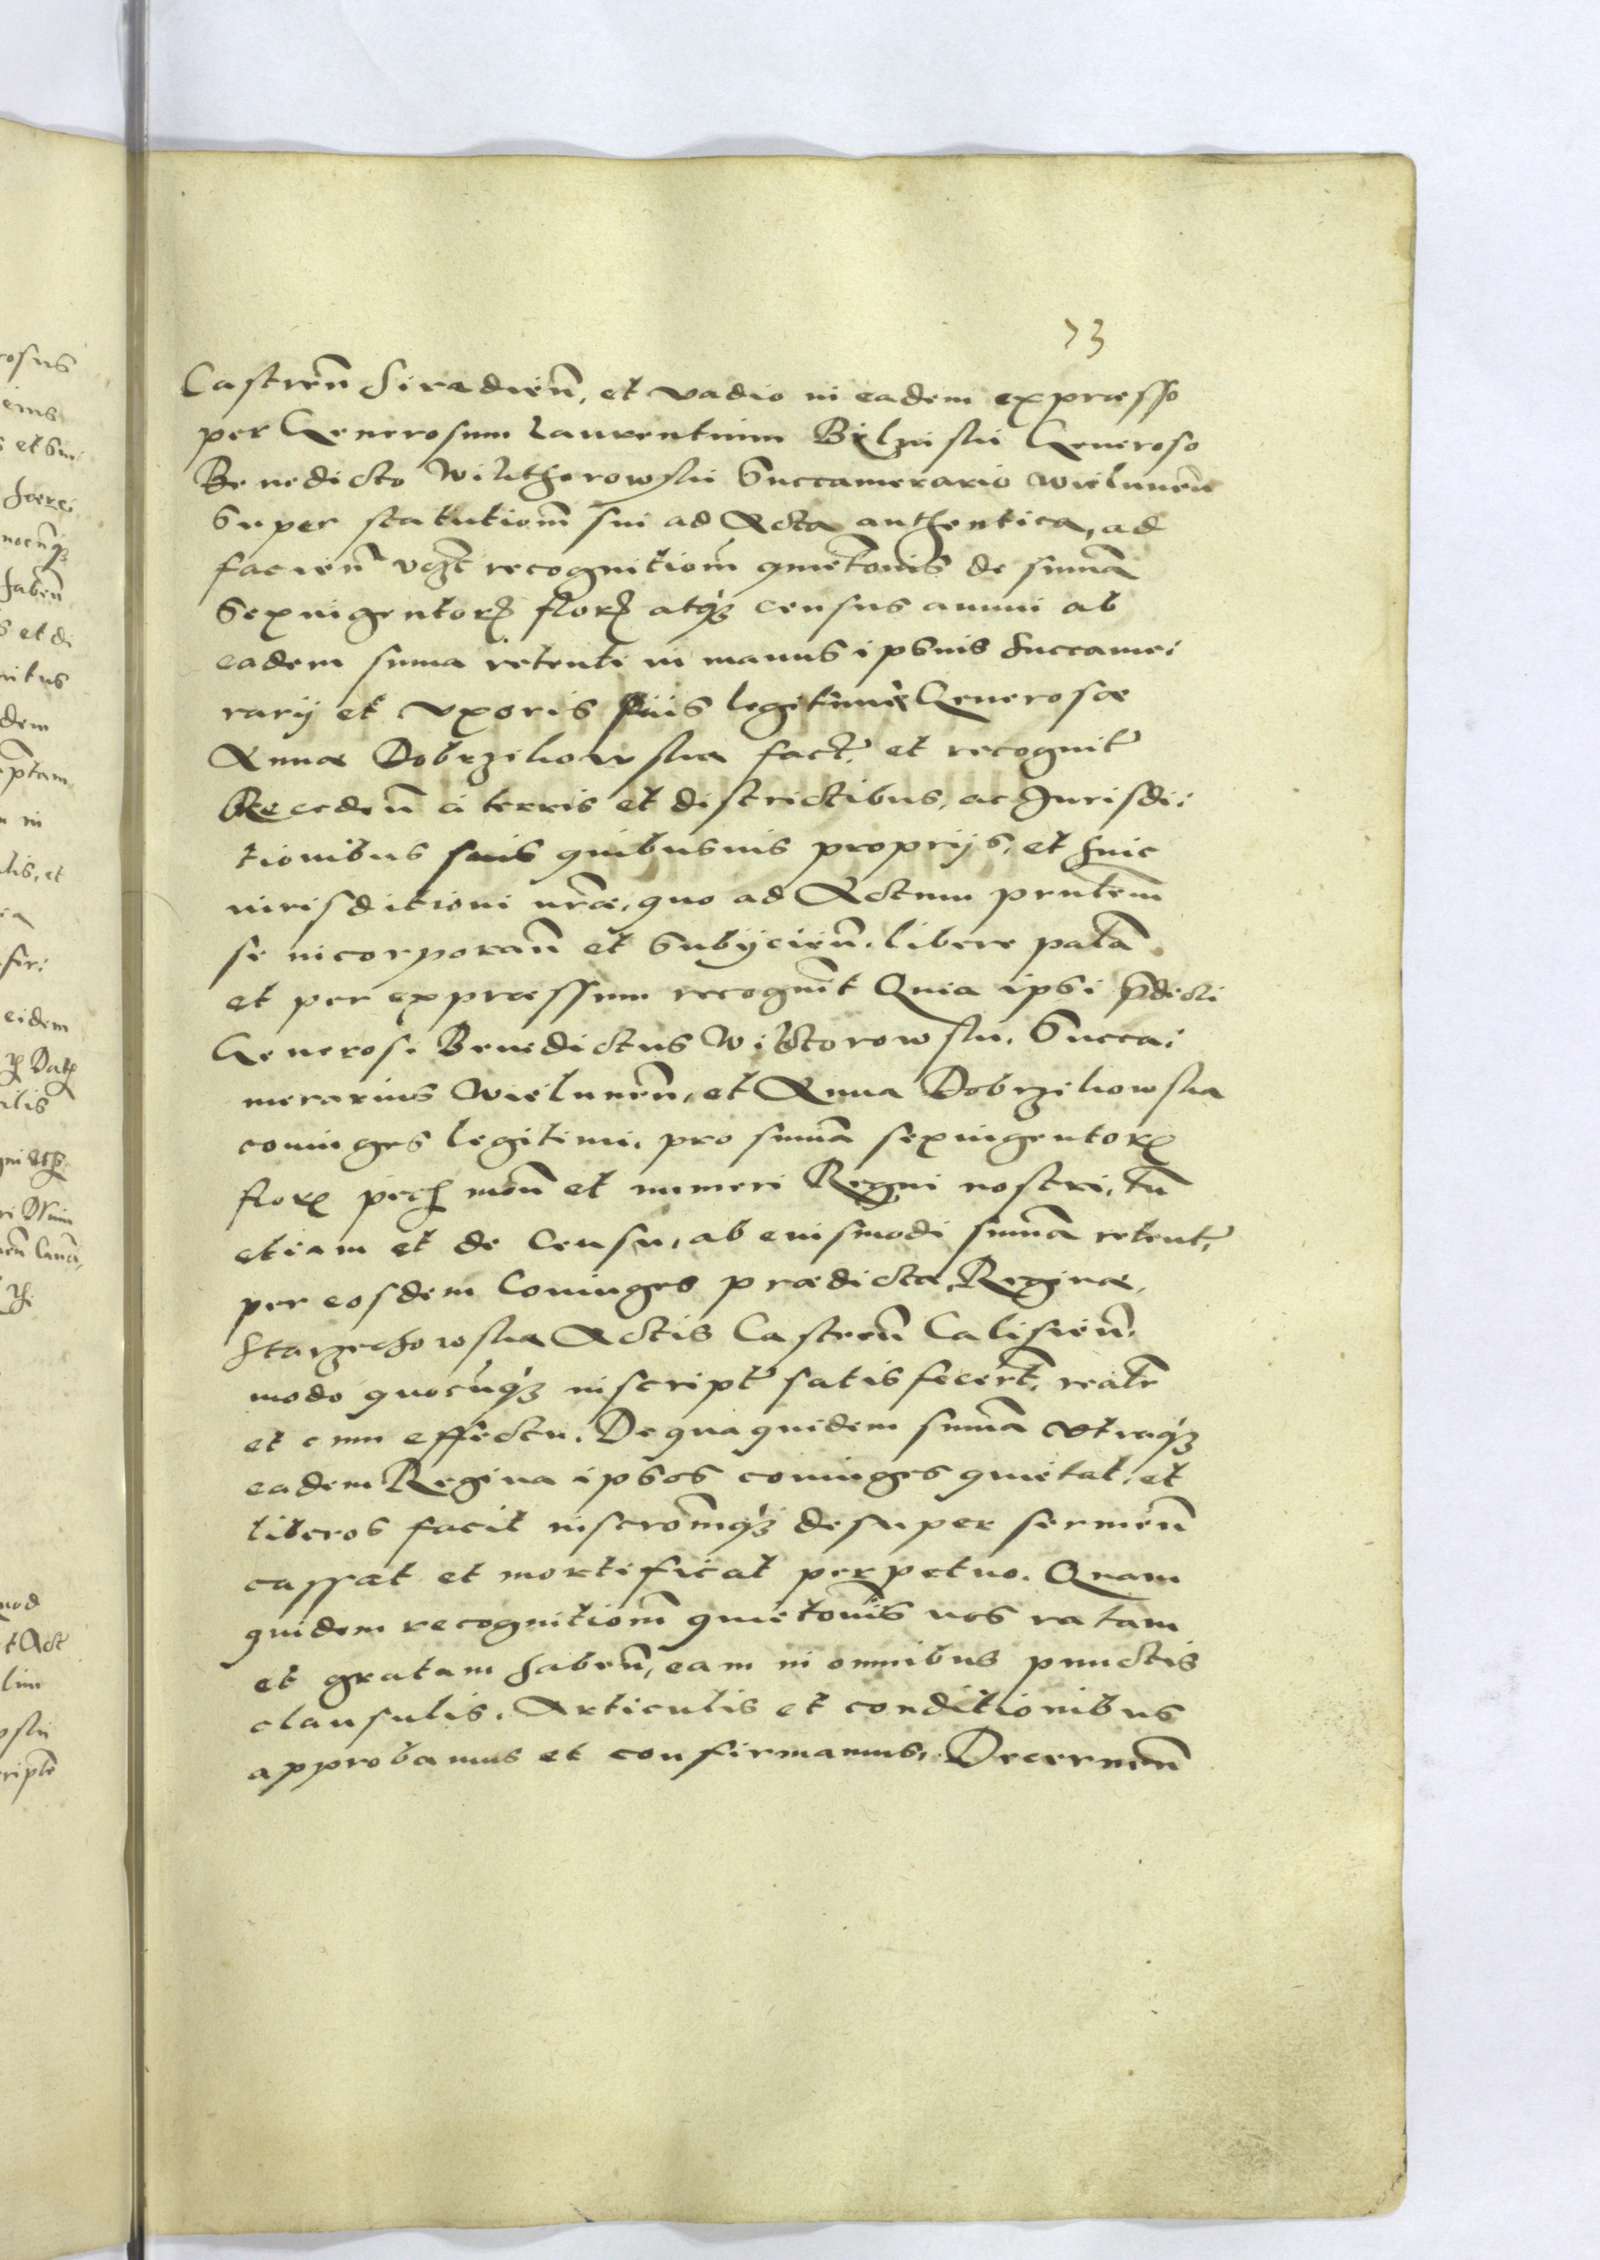 73
Castren̄ Siradien̄, et vadio in eadem expraesso
per Generosum Laurentium Bilziski Generoso
Benedicto Wikthorowski Succamerario Wielunen̄
super statutionem̄ sui ad Acta authentica, ad
facien̄ recognitiom̄ quietōnis de summā
Sexingentorꝝ florꝝ atqꝫ census annui ab
eadem summa retenti in manus ipsius Succame:
rarij et Vxoris suis legitimae Generosae
Annae Dobrzikowska fact: et recognit:
Receden̄ a terris et districtibus, ac Jurisdi:
tionibus suis quibusuis proprijs, et huic
iurisditioni nr̄ae, quo ad Actum pn̄tem
se incorporan̄ et subijcien̄. libere palā
et per expraessum recogn̄it Quia ipsi p̄dicti
Generosi Benedictus Wiktorowski, Succa:
merarius Wielunen̄, et Anna Dobrzikowska
coniuges legitimi, pro summā sexingentorꝝ
florꝝ pec̄ mon̄ et numeri Regni nostri, tū
etiam et de Censu, ab euismodi summā retent:
per eosdem Coniuges praedictae Reginae,
Starzechowska Actis Castren̄ Calisien̄.
modo quocūqꝫ inscript: satisfecer̄t, realr̄
et cum effectu. De qua quidem summā vtraqꝫ
eadem Regina ipsos coniuges quietat, et
liberos facit inscrōmqꝫ desuper seruien̄
cassat et mortificat perpetuo. Quam
quidem recognitiom̄ quietōnis nos ratam
et gratam haben̄, eam in omnibus punctis
clausulis, Articulis et conditionibus
approbamus et confirmamus, Decernen̄